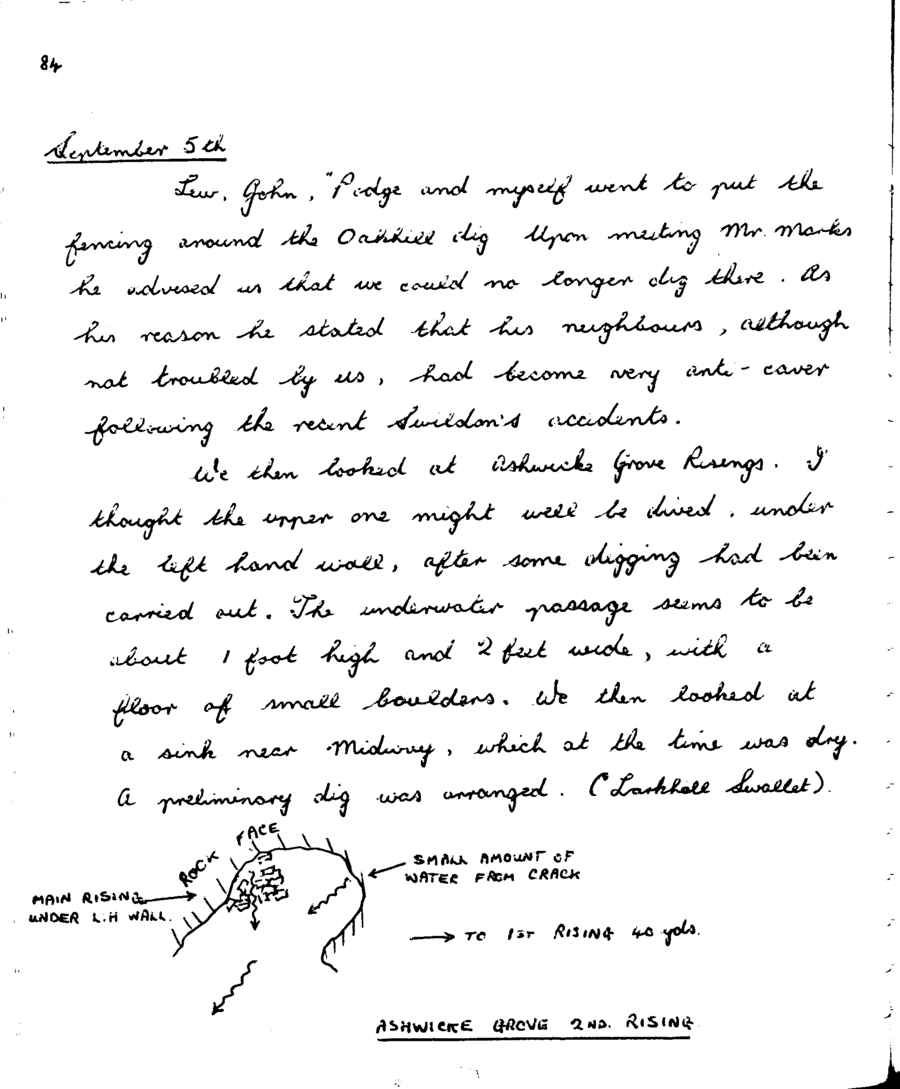 84
September 5th
Lew, John, "Podge and myself went to put the
fencing around the Oakhill dig Upon meeting Mr. Marks
he advised us that we could no longer dig there. As
his reason he stated that his neighbours, although
not troubled by us, had become very anti-caver
following the recent Swildon's accidents.
We then looked at Ashwicke Grove Risings. I
thought the upper one might well be dived, under
the left hand wall, after some digging had been
carried out. The underwater passage seems to be
about 1 foot high and 2 feet wide, with a
floor of small boulders. We then looked at
a sink near Midway, which at the time was dry.
A preliminary dig was arranged. (Larkhall Swallet).
ROCK FACE
SMALL AMOUNT OF
WATER FROM CRACK
MAIN RISING
UNDER L.H WALL.
TO 1ST RISING 40 yds.
ASHWICKE GROVE 2ND. RISING